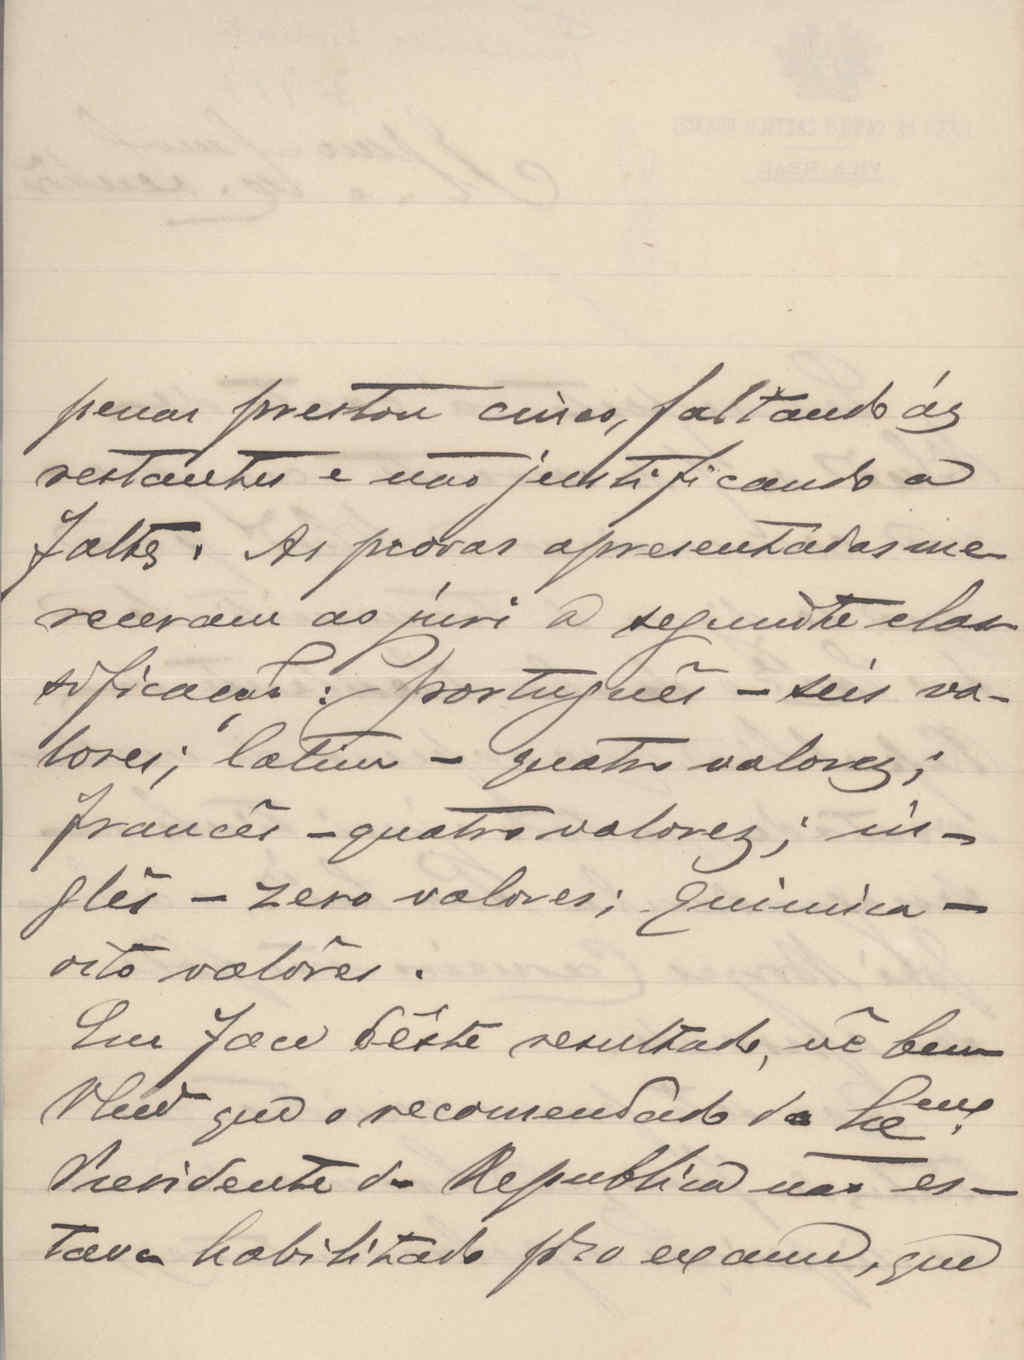 penas prestou cinco, faltando ás
restantes e não justificando a
falta. As provas apresentadas me-
receram ao júri a seguinte clas
sificação: português - seis va-
lores; latim - quatro valores;
francês - quatro valores; in-
glês - zero valores; quimica -
oito valôres.
Em face dêste resultado, vê bem
que o recomendado do Exmo.
Presidente da Republica não es-
tava habilitado pra o exame, que